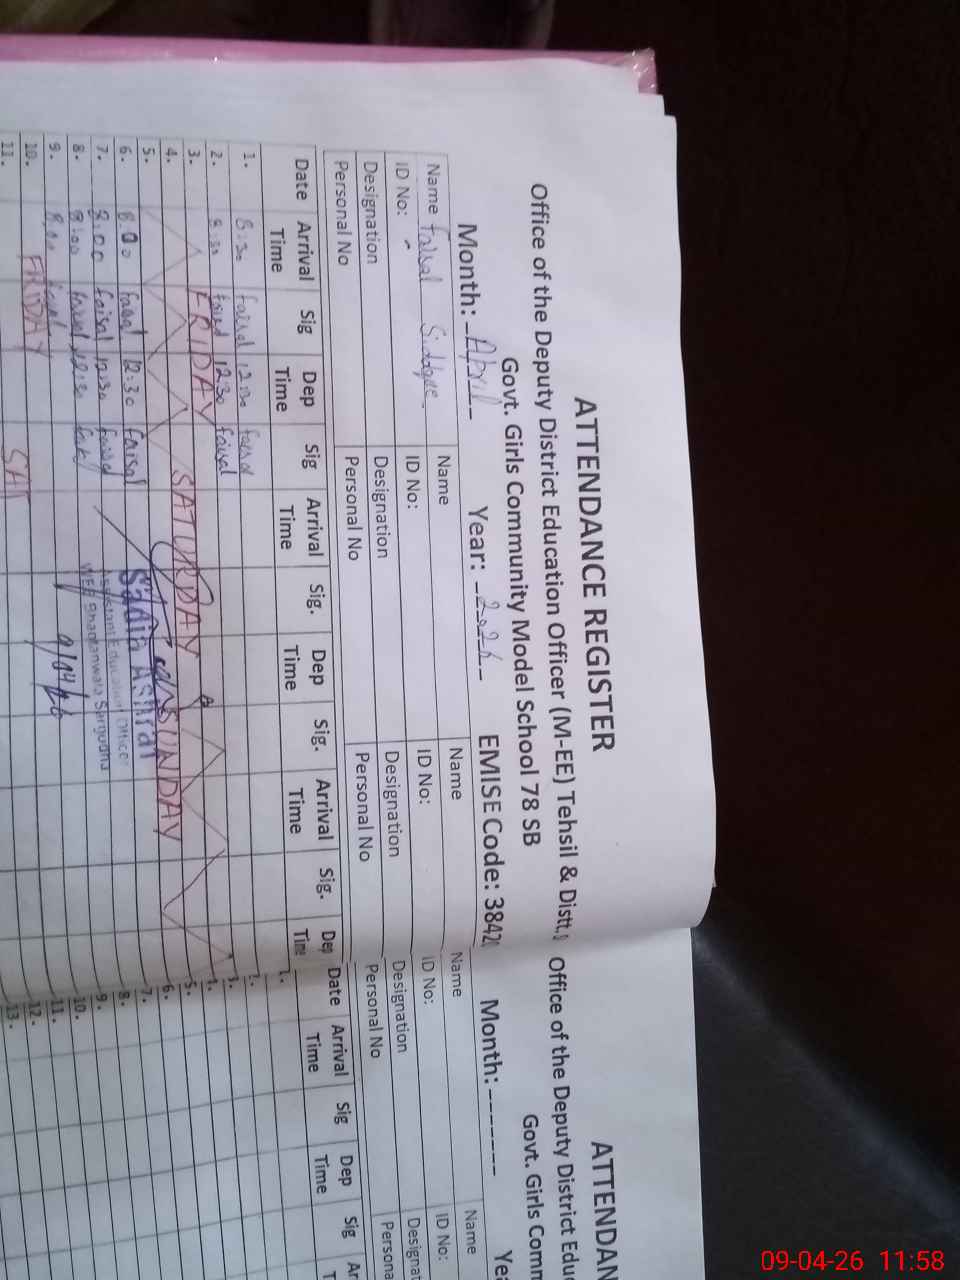 ATTENDANCE REGISTER
Office of the Deputy District Education Officer (M-EE) Tehsil & Distt.
Govt. Girls Community Model School 78 SB
Month: April Year: 2026 EMISE Code: 3842
Name Faisal Name Name
ID No: ID No: ID No:
Designation Designation Designation
Personal No Personal No Personal No
Date Arrival Time Sig Dep Time Sig Arrival Time Sig. Dep Time Sig. Arrival Time Sig. Dep
1. 8:30 faisal 12:30 faisal
2. 8:30 faisal 12:30 faisal
3. FRIDAY
4. SATURDAY
5. SUNDAY
6. 8:00 faisal 12:30 faisal
7. 8:00 faisal 12:30 faisal
8. 8:00 faisal 12:30
9. 8:00
10. FRIDAY
11. SAT
Sadia Ashraf
Assistant Education Officer
9/04/26
ATTENDAN
Office of the Deputy District Educ
Govt. Girls Comm
Month: Yea
Name Name
ID No: ID No:
Designation Designat
Personal No Persona
Date Arrival Time Sig Dep Time Sig Ar
1.
2.
3.
4.
5.
6.
7.
8.
9.
10.
11.
12.
13.
09-04-26 11:58